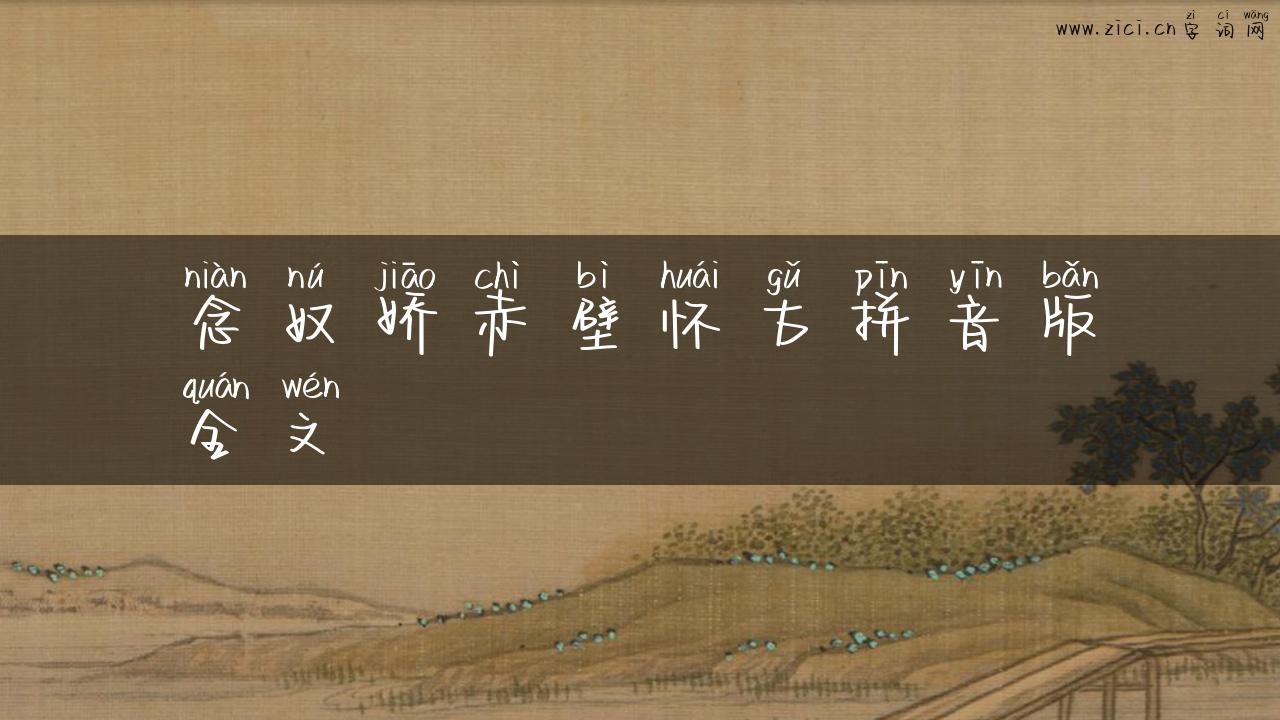 zì cí wǎng
www.zici.cn字词网
niàn nú jiāo chì bì huái gǔ pīn yīn bǎn
念奴娇赤壁怀古拼音版
quán wén
全文